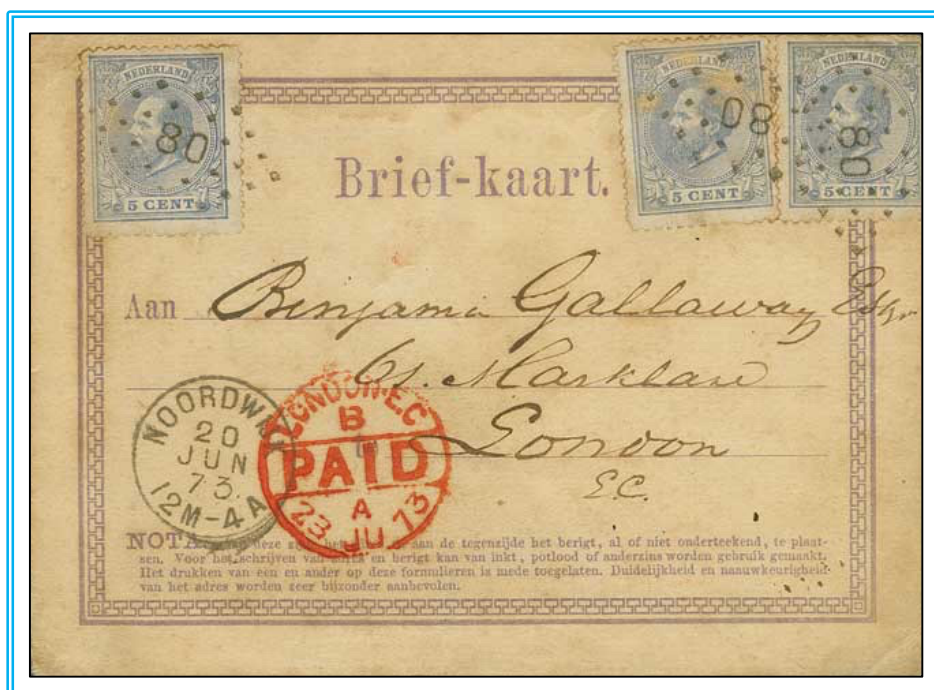 NEDERLAND NEDERLAND NEDERLAND
80 80 80
5 CENT 5 CENT 5 CENT
Brief-kaart.
Aan Benjamin Gallaway Esqr
61. Marklane
London
E.C.
NOORDW
20
JUN
73.
12M-4A
LONDON.E.C
B
PAID
A
23 JU 73
NOTA deze aan de tegenzijde het berigt, al of niet onderteekend, te plaat-
sen. Voor het schrijven van adres en berigt kan van inkt, potlood of anderzins worden gebruik gemaakt.
Het drukken van een en ander op deze formulieren is mede toegelaten. Duidelijkheid en naauwkeurigheid
van het adres worden zeer bijzonder aanbevolen.